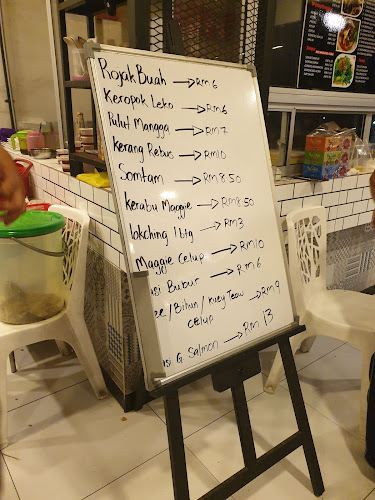 Rojak Buah → RM 6
Keropok Leko → RM 6
Pulut Mangga → RM 7
Kerang Rebus → RM 10
Somtam → RM 8.50
Kerabu Maggie → RM 8.50
lokching 1 btg → RM 3
Maggie Celup → RM 10
Bubur → RM 6
/ Bihun / Kuey Teow → RM 9
celup
G. Salmon → RM 13